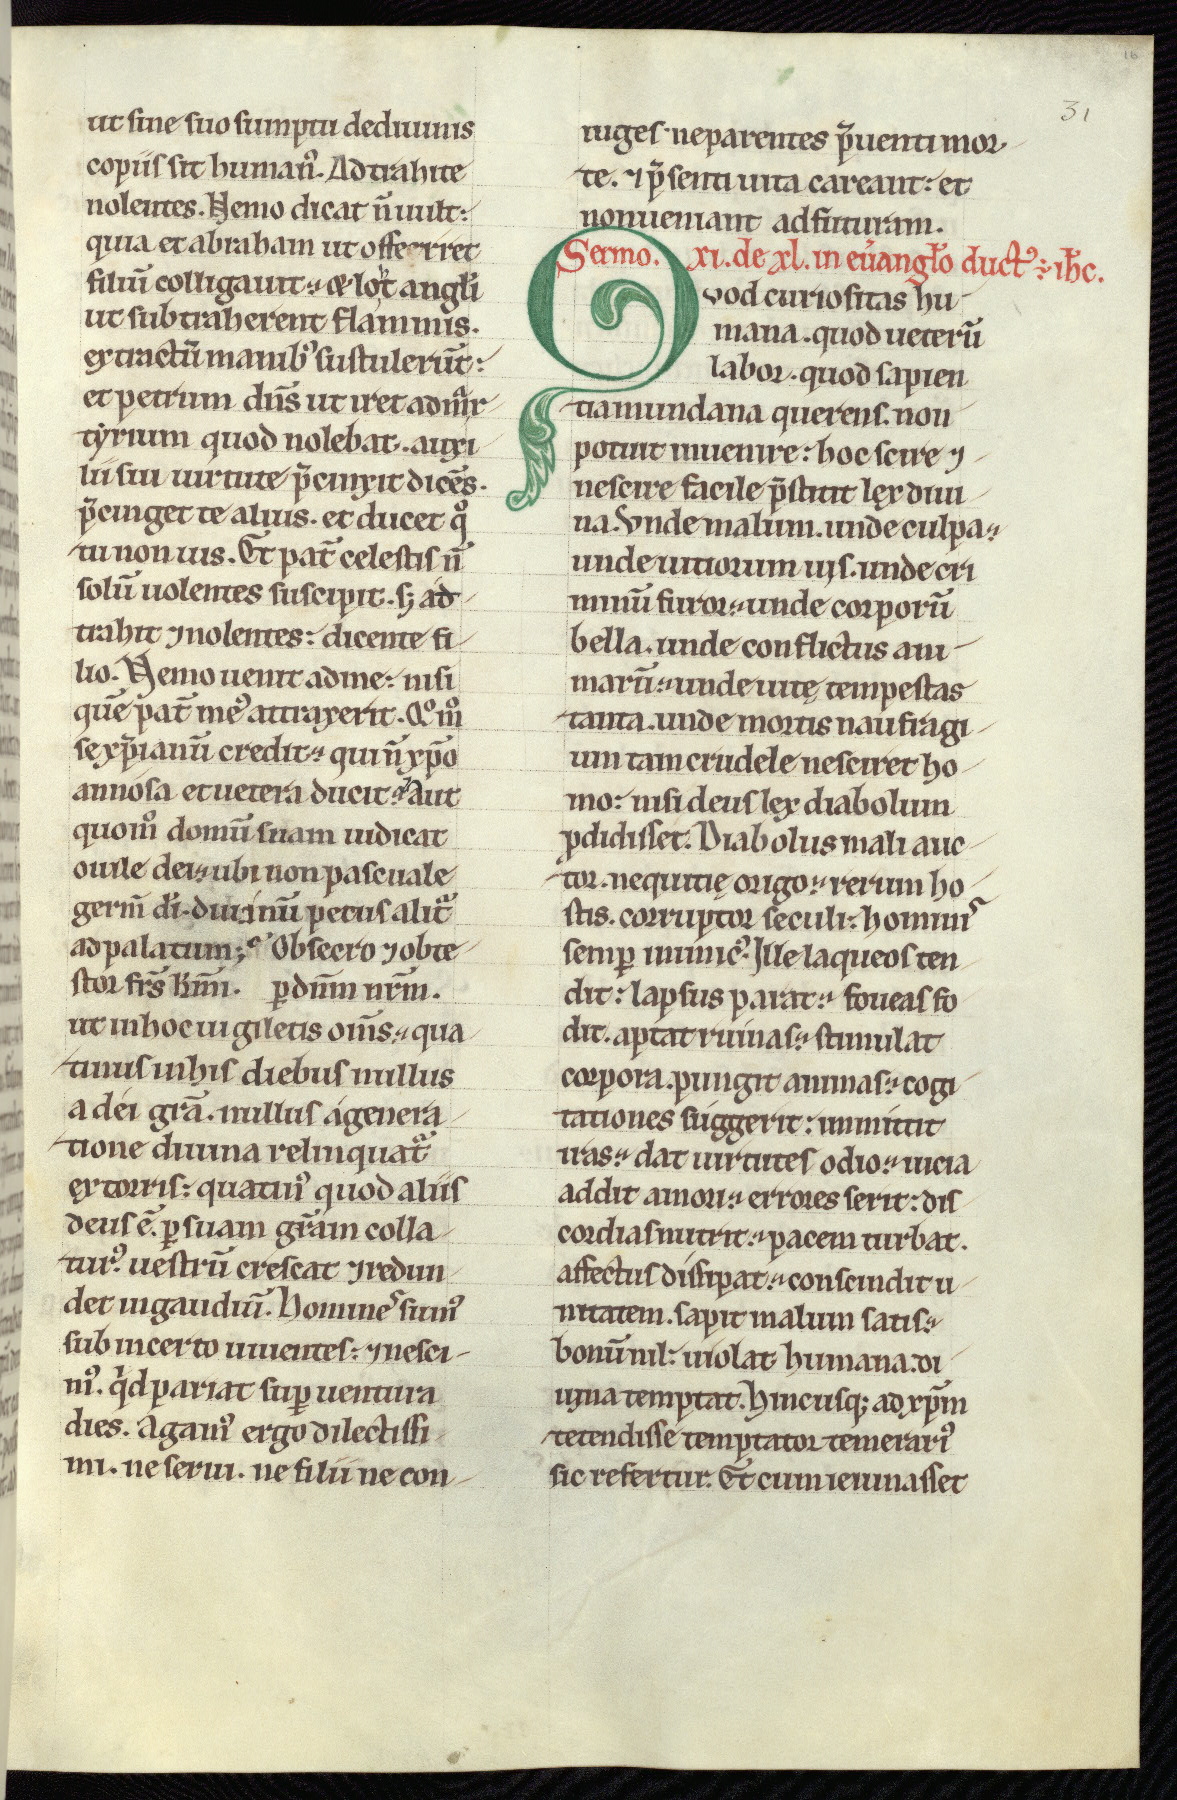 31
16
ut sine suo sumptu de diuinis
copiis sit human᷒. Adtrahite
nolentes. Nemo dicat n̄ uult:
quia et abraham ut offerret
filiū colligauit. & loth angl̄i
ut subtraherent flammis.
extractū manib᷒ sustulerūt:
et petrum dn̄s ut iret ad mar
tyrium quod nolebat. auxi
lii sui uirtute p̄cinxit dicēs.
p̄cinget te alius. et ducet qͦ
tu non uis. Et pat̄ celestis n̄
solū uolentes suscipit. sꝫ ad
trahit ⁊ nolentes: dicente fi
lio. Nemo uenit ad me: nisi
quē pat̄ me᷒ attraxerit. Qͦm̊
se xp̄ianū credit. qui n̄ xp̄o
annosa et uetera ducit? Aut
quom̊ domū suam iudicat
ouile dei. ubi non pascuale
germ̄ di. diuinū pecus alit᷑
ad palatum; Obsecro ⁊ obte
stor fr̄s k̄mi. ꝑ dn̄m nr̄m.
ut in hoc uigiletis om̄s. qua
tinus in his diebus nullus
a dei gr̄a. nullus a genera
tione diuina relinquat᷑
extorris: quatin᷒ quod aliis
deus ē. ꝑ suam gr̄am colla
tur᷒. uestrū crescat ⁊ redun
det in gaudiū. Homines sum᷒
sub incerto uiuentes: ⁊ nesci
m᷒. qͥd pariat suꝑuentura
dies. Agam᷒ ergo dilectissi
mi. ne serui. ne filii ne con
iuges. ne parentes p̄uenti mor
te. ⁊ p̄senti uita careant: et
non ueniant ad futuram.
Sermo. xi. de xl. in euangl̄o duct᷒: ih̄c.
Quod curiositas hu
mana. quod ueterū
labor. quod sapien
tia mundana querens. non
potuit inuenire: hoc scire ⁊
nescire facile p̄stitit lex diui
na. Vnde malum. unde culpa.
unde uitiorum uis. unde cri
minū furor. unde corporū
bella. unde conflictus ani
marū. unde uitę tempestas
tanta. unde mortis naufragi
um tam crudele nesciret ho
mo: nisi deus lex diabolum
ꝓdidisset. Diabolus mali auc
tor. nequitię origo. rerum ho
stis. corruptor seculi: hominis
semꝑ inimic᷒. Ille laqueos ten
dit: lapsus parat. foueas fo
dit. aptat ruinas. stimulat
corpora. pungit animas. cogi
tationes suggerit: inmittit
iras. dat uirtutes odio. uicia
addit amori. errores serit: dis
cordias nutrit. pacem turbat.
affectus dissipat. conscindit u
nitatem. sapit malum satis.
bonū nil: uiolat humana. di
uina temptat. Hinc usq; ad xp̄m
tetendisse temptator temerari᷒
sic refertur. Et cum ieiunasset